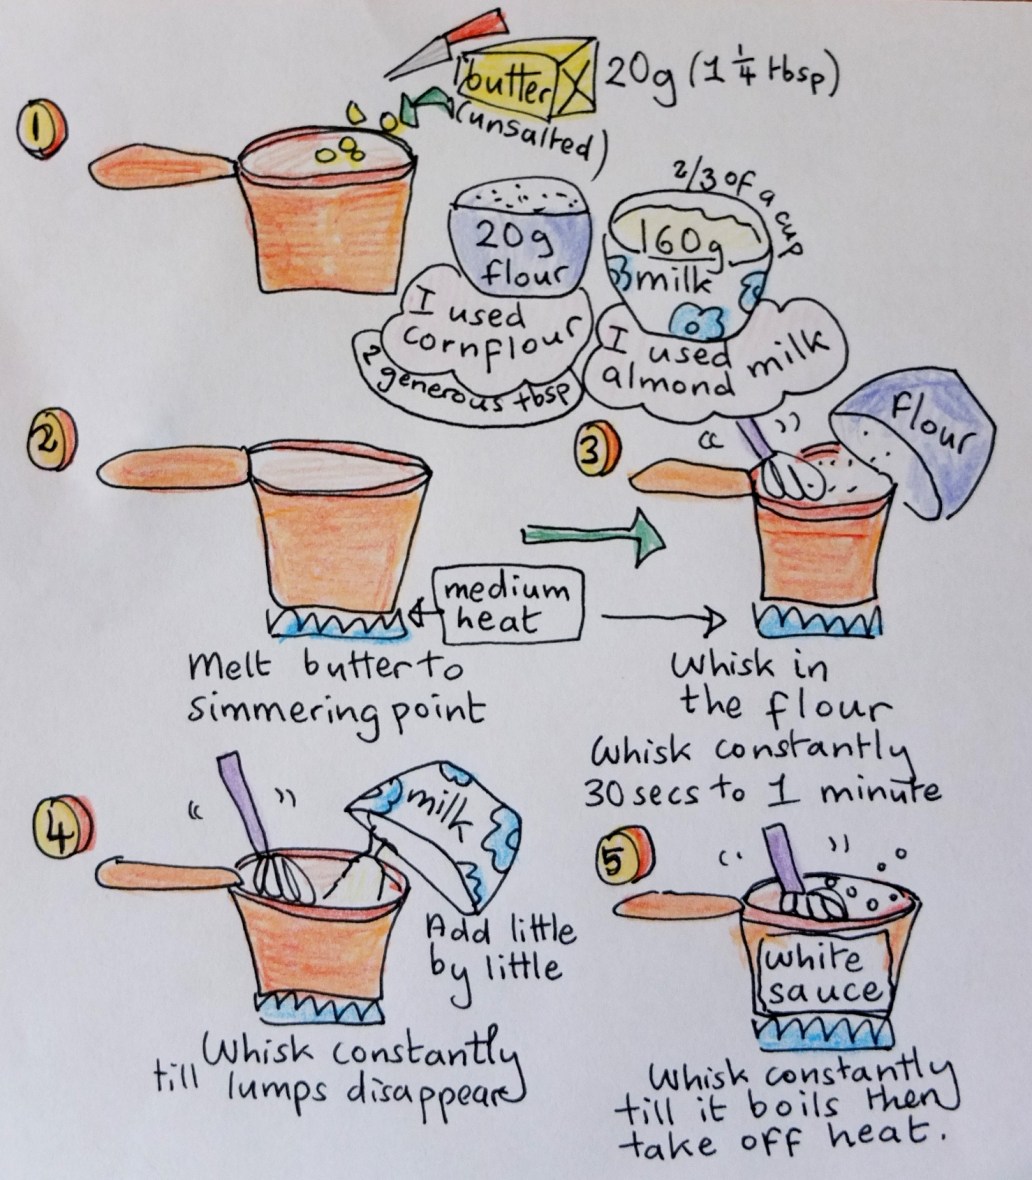 1
butter
20g (1 1/4 tbsp)
(unsalted)
20g
flour
2/3 of a cup
160g
milk
I used
cornflour
2 generous tbsp
I used
almond milk
2
3
Flour
medium
heat
Melt butter to
simmering point
Whisk in
the flour
Whisk constantly
30 secs to 1 minute
4
milk
Add little
by little
Whisk constantly
till lumps disappear
5
white
sauce
Whisk constantly
till it boils then
take off heat.